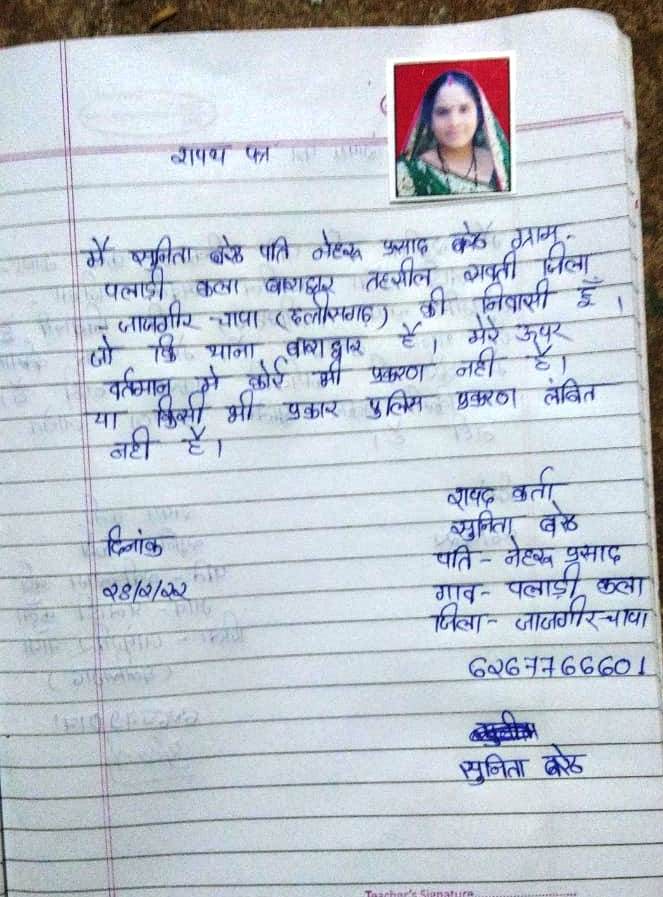 शपथ पत्र
मै सुनिता बरेठ पति नेहरू प्रसाद बरेठ ग्राम-
पलाड़ी कला बाराद्वार तहसील सक्ती जिला
- जाजगीर-चापा (छत्तीसगढ़) की निवासी हूँ ।
जो कि थाना बाराद्वार है । मेरे ऊपर
वर्तमान मे कोई भी प्रकरण नही है ।
या किसी भी प्रकार पुलिस प्रकरण लंबित
नही है ।
शपद कर्ता
सुनिता बरेठ
दिनांक
पति - नेहरू प्रसाद
गाव - पलाड़ी कला
जिला - जाजगीर-चापा
6267766601
सुनिता बरेठ
Teacher's Signature